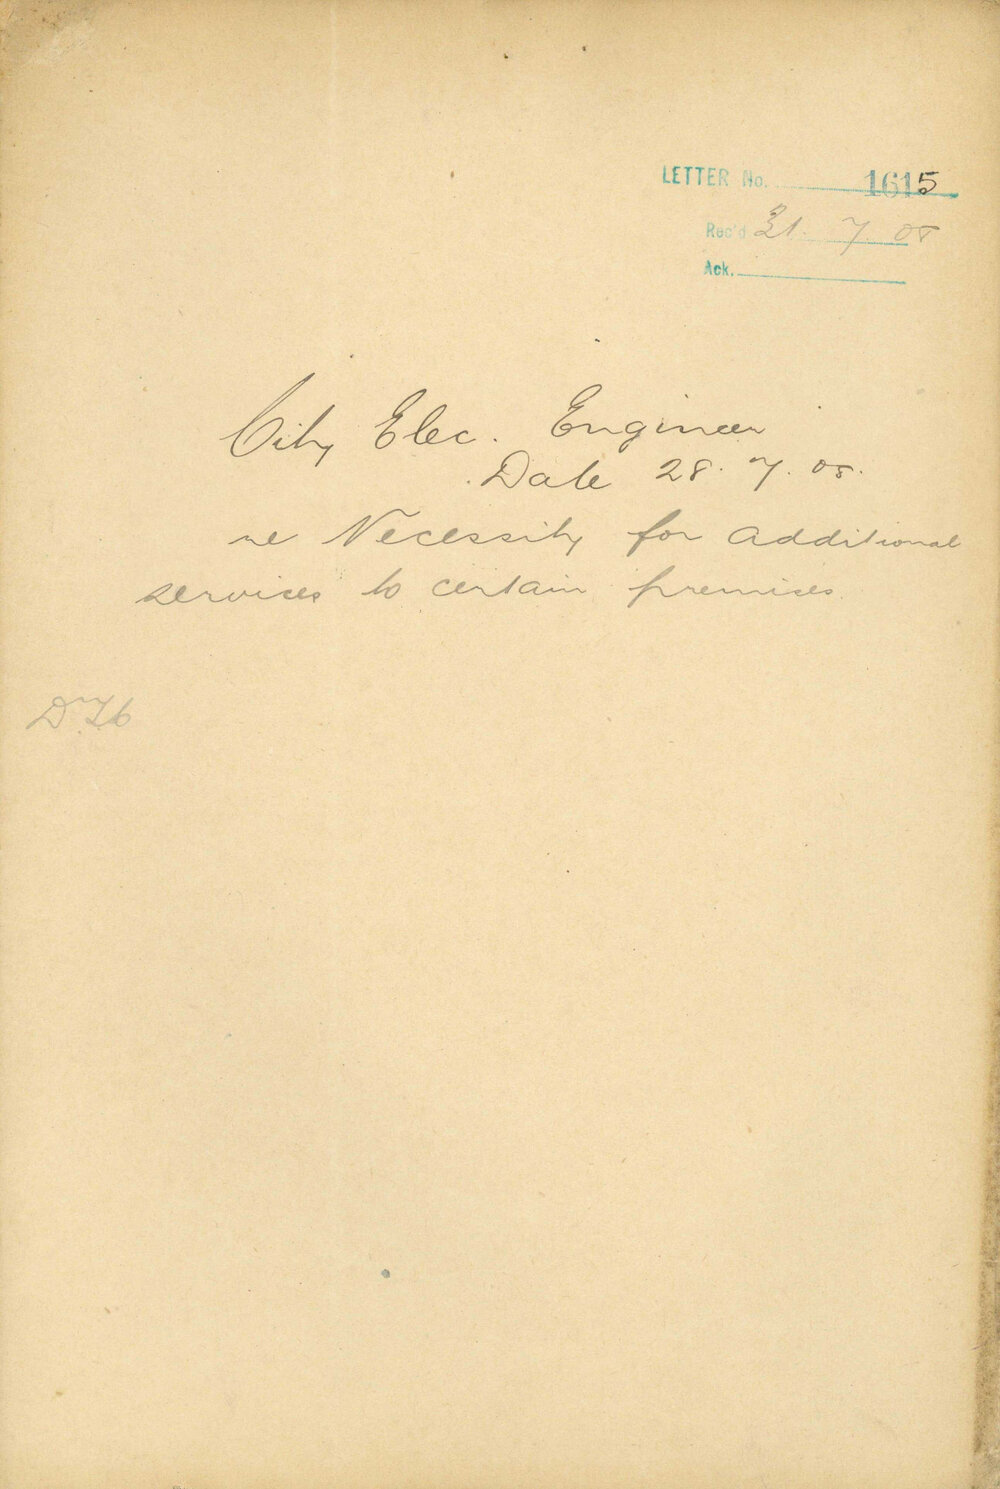 LETTER No. 1615
Rec'd 31. 7 08
Ack.
City Elec. Engineer
Date 28. 7. 08.
re Necessity for additional
services to certain premises.